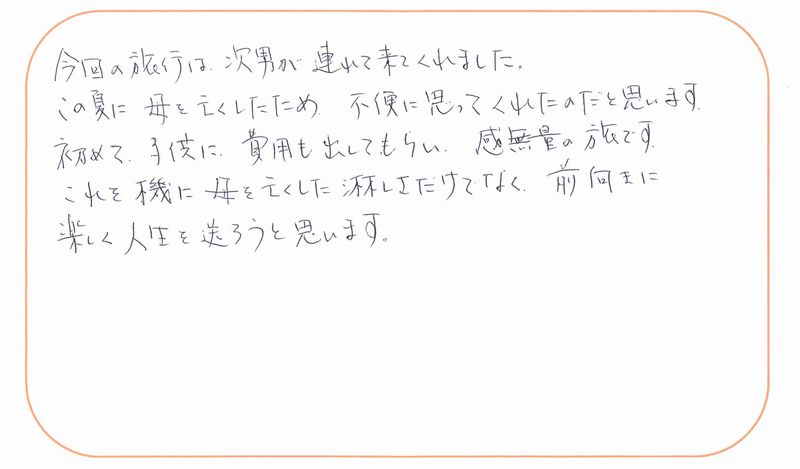 今回の旅行は、次男が連れて来てくれました。
この夏に母を亡くしたため、不便に思ってくれたのだと思います。
初めて、子供に、費用も出してもらい、感無量の旅です。
これを機に母を亡くした淋しさだけでなく、前向きに
楽しく人生を送ろうと思います。